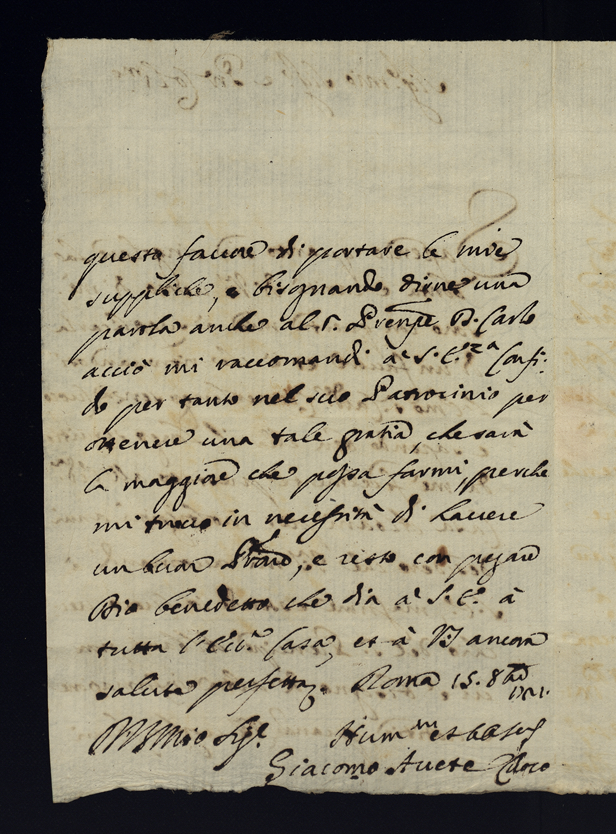 questo favore di portare le mie
suppliche, e bisognando dirne una
parola anche al S. Prenpe D. Carlo
acciò mi raccomandi à S. E.za Confi:
do per tanto nel suo Patrocinio per
ottenere una tale gratia, che sarà
la maggiore che possa farmi, perche
mi trovo in necessità di havere
un buon, e resto con pregare
Dio benedetto che dia à S. E. à
tutta l'Ecc.ma Casa, et à VS ancora
salute perfetta. Roma 15. 8bre
Mio Sig.r Hum.mo et
Giacomo